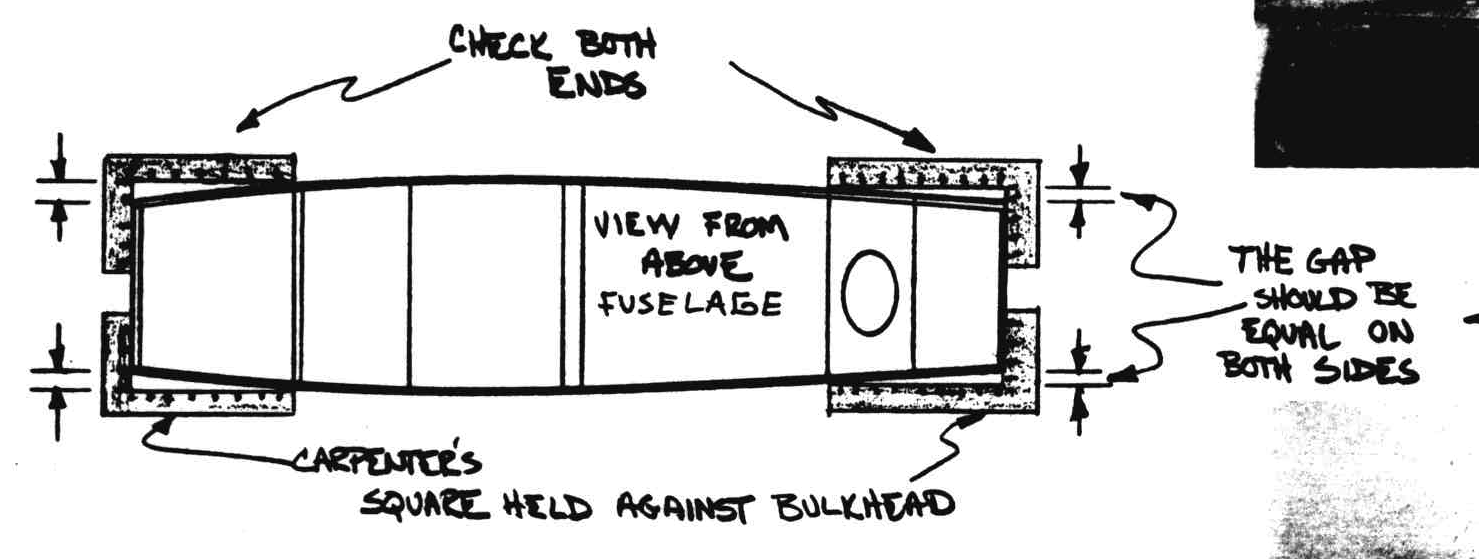 CHECK BOTH
ENDS
VIEW FROM
ABOVE
FUSELAGE
THE GAP
SHOULD BE
EQUAL ON
BOTH SIDES
CARPENTER'S
SQUARE HELD AGAINST BULKHEAD